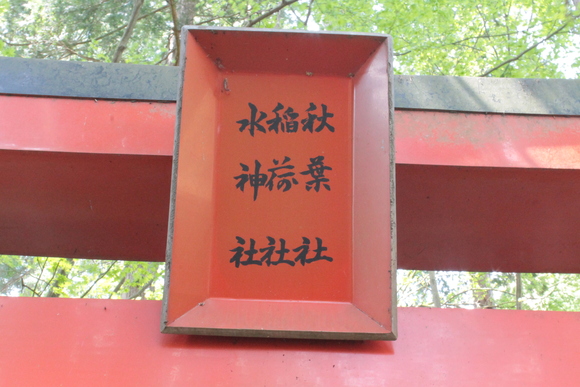 秋葉社
稲荷社
水神社